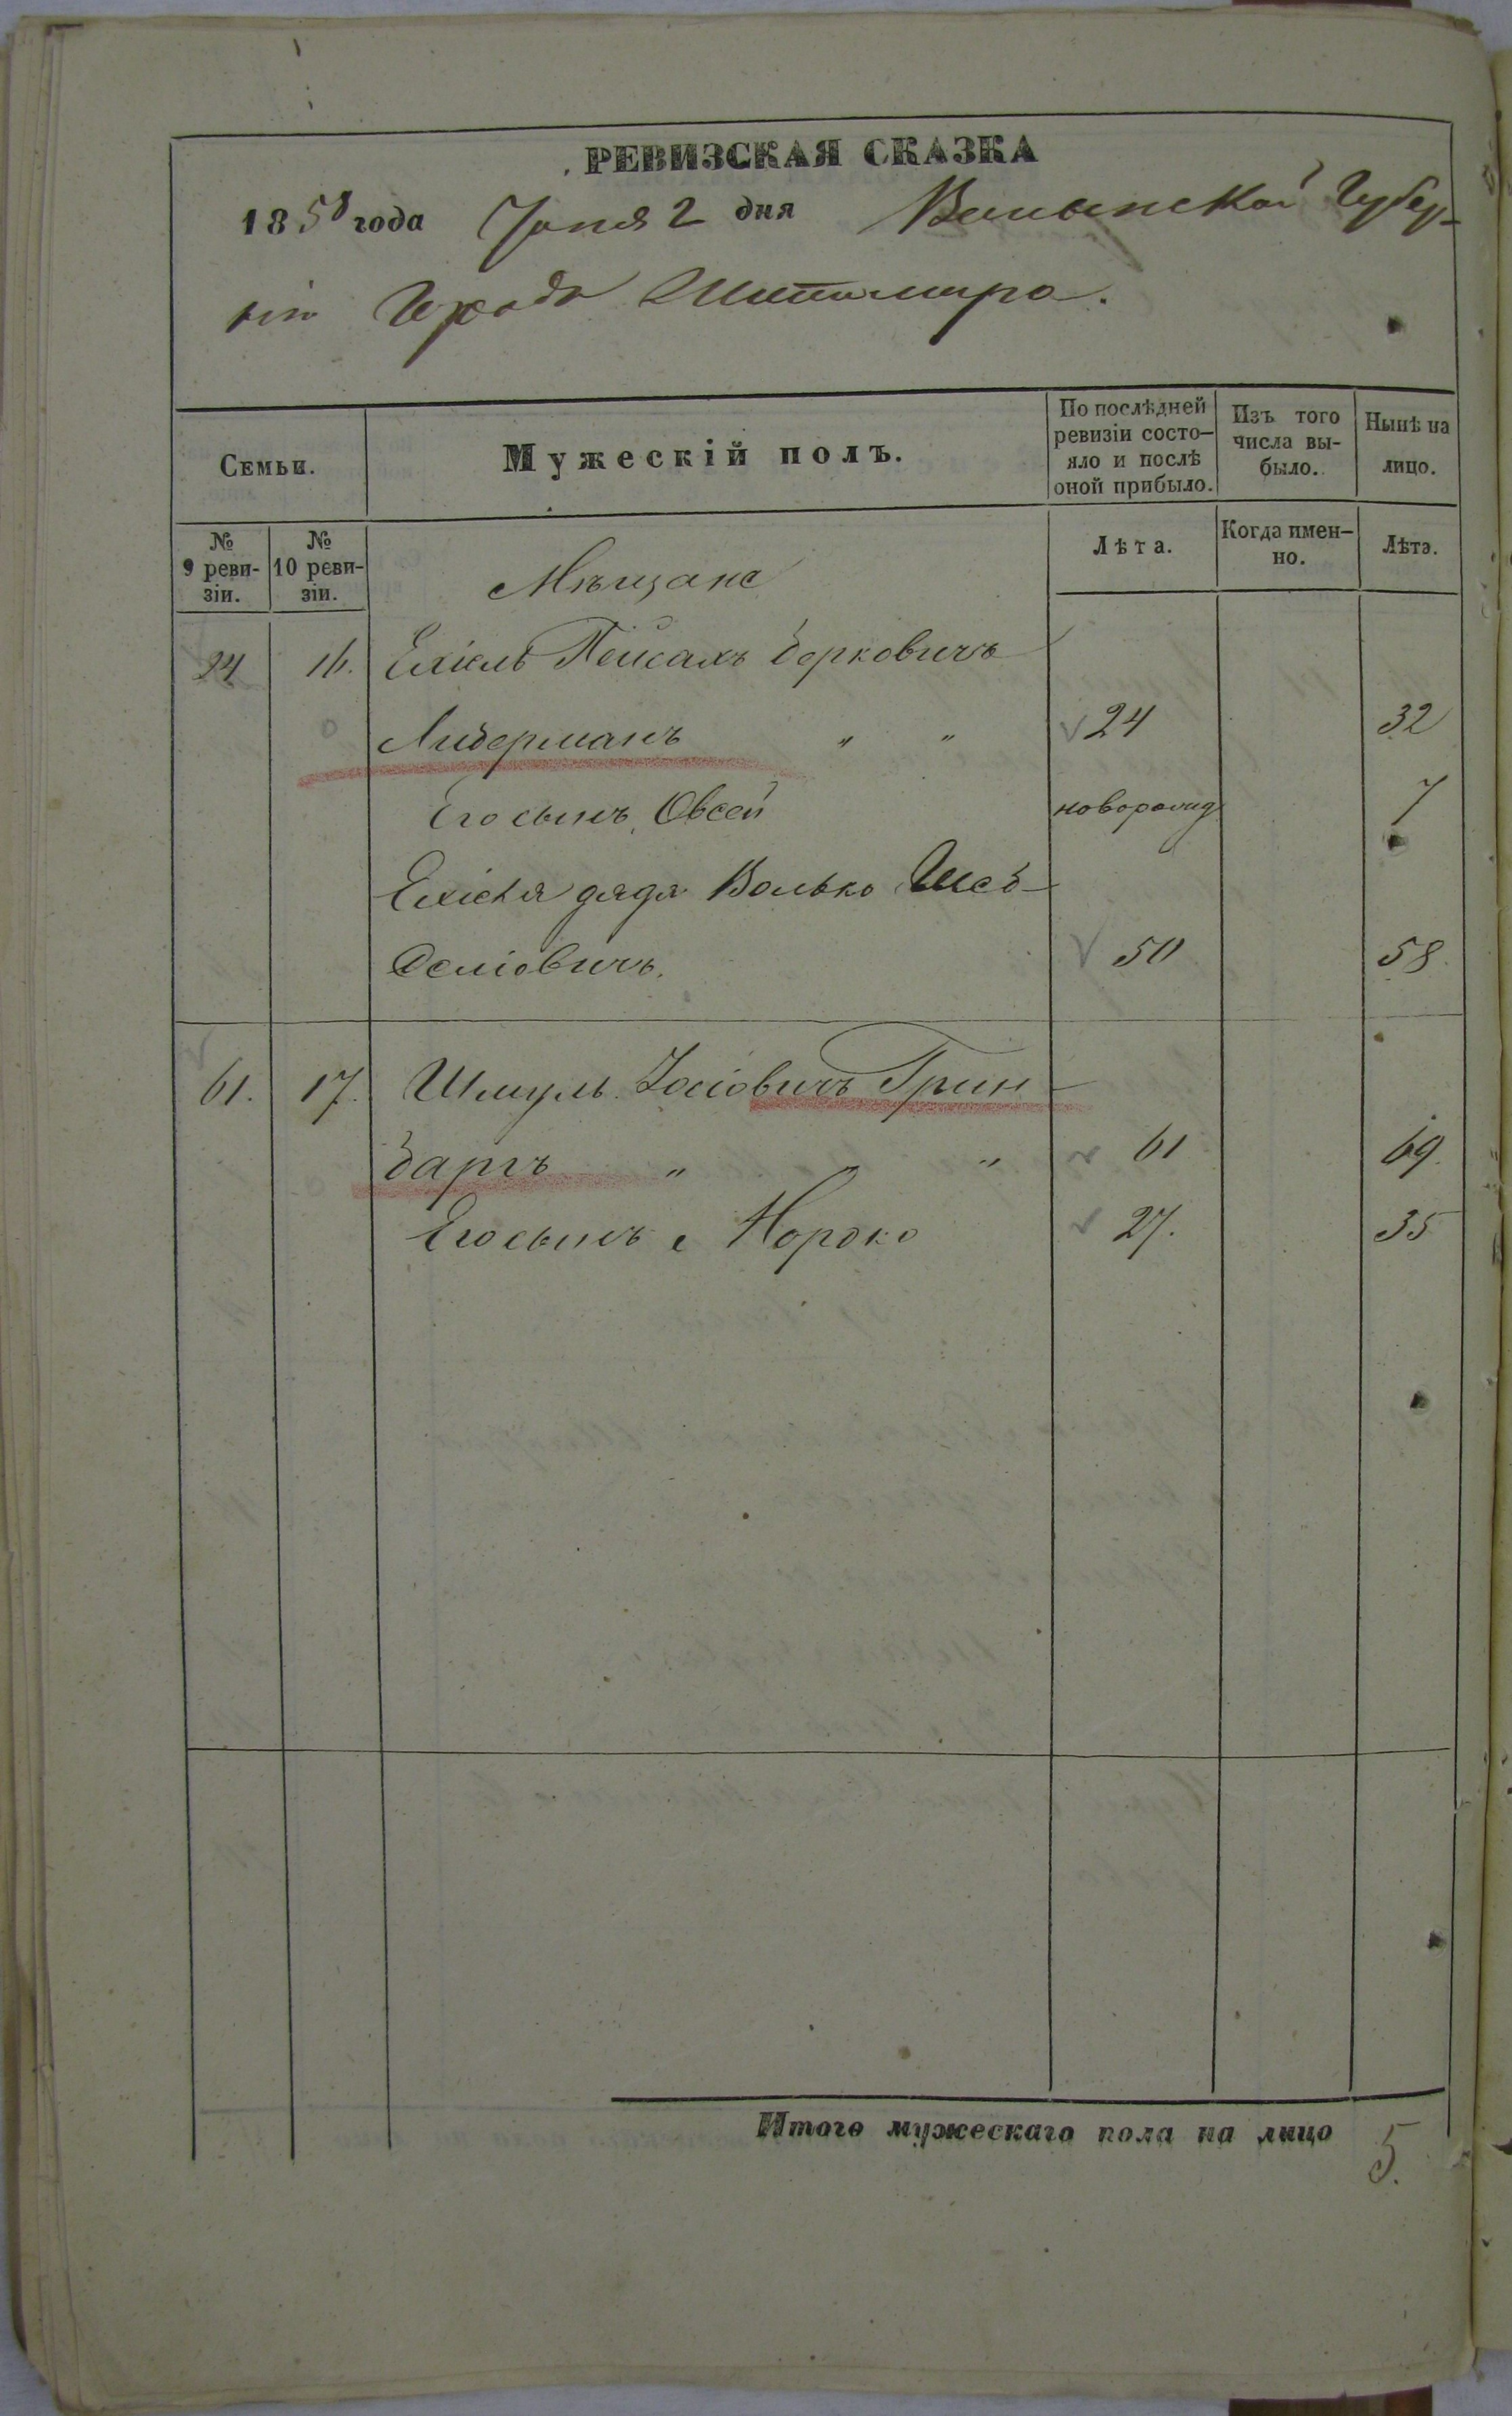 РЕВИЗСКАЯ СКАЗКА
1858 года Іюня 2 дня Волынской Губер-
ніи Города Житомира.
Семьи.
Мужескій полъ.
По послѣдней ревизіи состо-яло и послѣ оной прибыло.
Изъ того числа вы-было.
Нынѣ на лицо.
№ 9 реви-зіи.
№ 10 реви-зіи.
Лѣта.
Когда имен-но.
Лѣта.
Мѣщане
24 16. Ехіель Пейсахъ Берковичъ
Либерманъ " " 24 32
Его сынъ Овсей новорожд 7
Ехіеля дядя Волько
50 58
61. 17. Шмуль Іосіовичъ Грин-
баргъ " " 61 69.
Его сынъ Нордко 27. 35
Итого мужескаго пола на лицо 5.